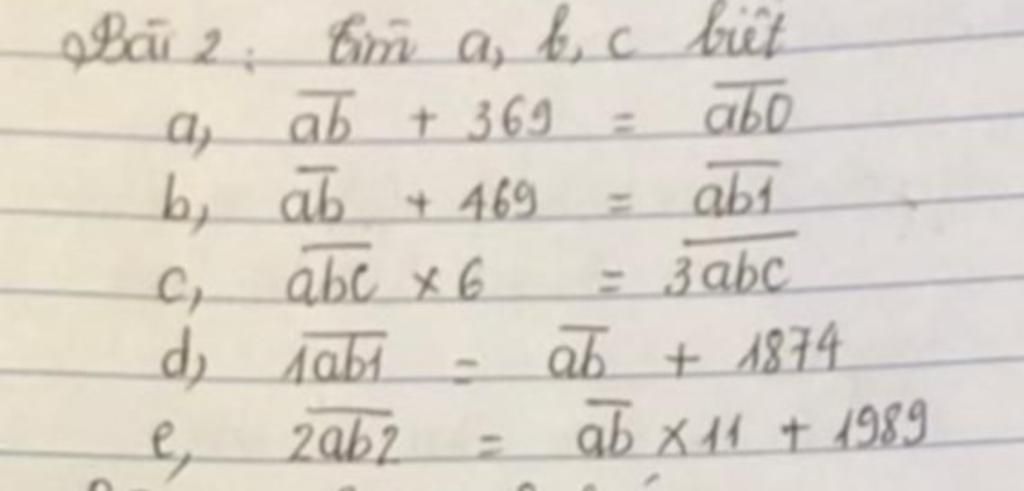 Bài 2: Tìm a, b, c biết
a, a̅b̅ + 369 = a̅b̅0̅
b, a̅b̅ + 469 = a̅b̅1̅
c, a̅b̅c̅ × 6 = 3̅a̅b̅c̅
d, 1̅a̅b̅1̅ = a̅b̅ + 1874
e, 2̅a̅b̅2̅ = a̅b̅ × 11 + 1989